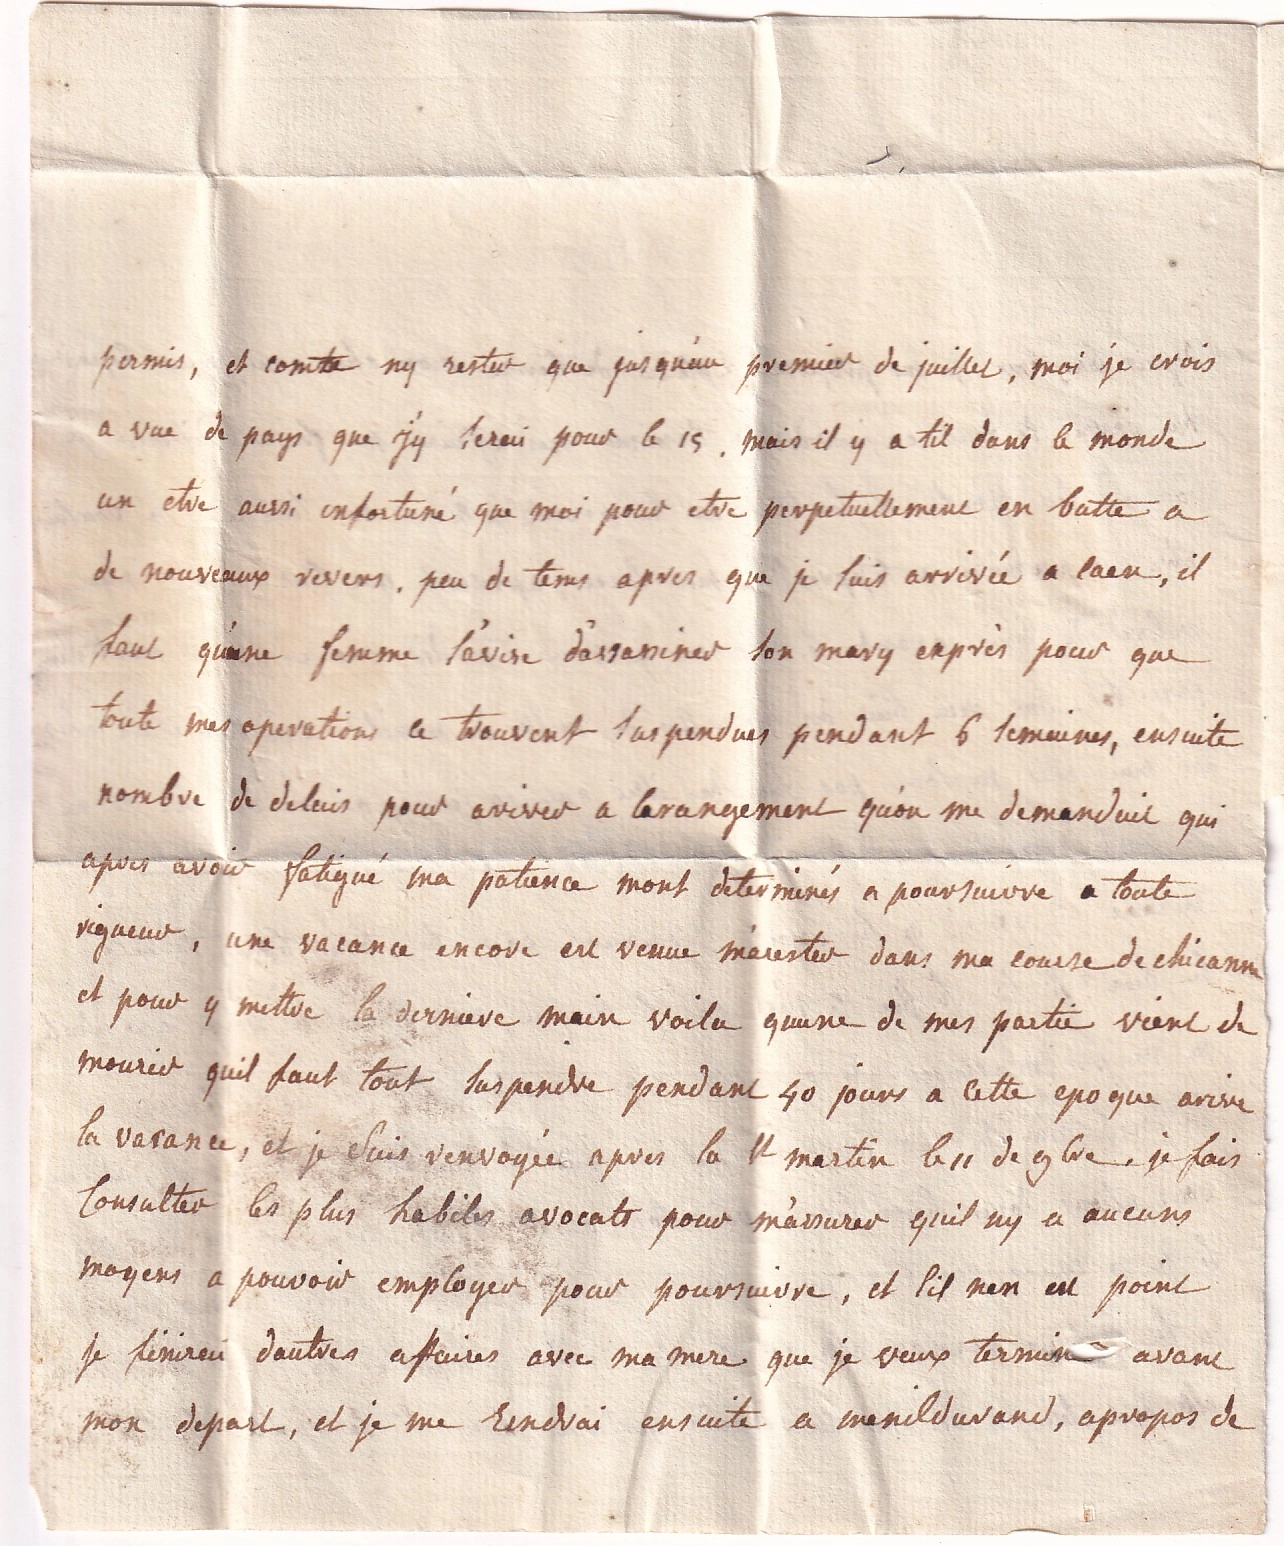 permis, et comte ny rester que jusqu'au premier de juillet, moi je crois
a vue de pays que j'y serai pour le 15. mais il y a til dans le monde
un etre aussi infortuné que moi pour etre perpetuellement en butte a
de nouveaux revers. peu de tems apres que je suis arrivée a caen, il
faut qu'une femme s'avise d'assassiner son mary exprès pour que
toute mes operations ce trouvent suspendues pendant 6 semaines, ensuite
nombre de delais pour ariver a larangement qu'on me demandait qui
apres avoir fatigué ma patience mont determinés a poursuivre a toute
rigueur, une vacance encore est venue m'arester dans ma course de chicanne
et pour y mettre la derniere main voila quune de mes partie vient de
mourir quil faut tout suspendre pendant 40 jours a cette epoque arive
la vacance, et je suis renvoyée apres la st martin le 11 de 9bre. je fais
consulter les plus habiles avocats pour m'assurer quil ny a aucuns
moyens a pouvoir employer pour poursuivre, et s'il nen est point
je finirai dautres affaires avec ma mere que je veux termine avant
mon depart, et je me rendrai ensuite a menildurand, apropos de